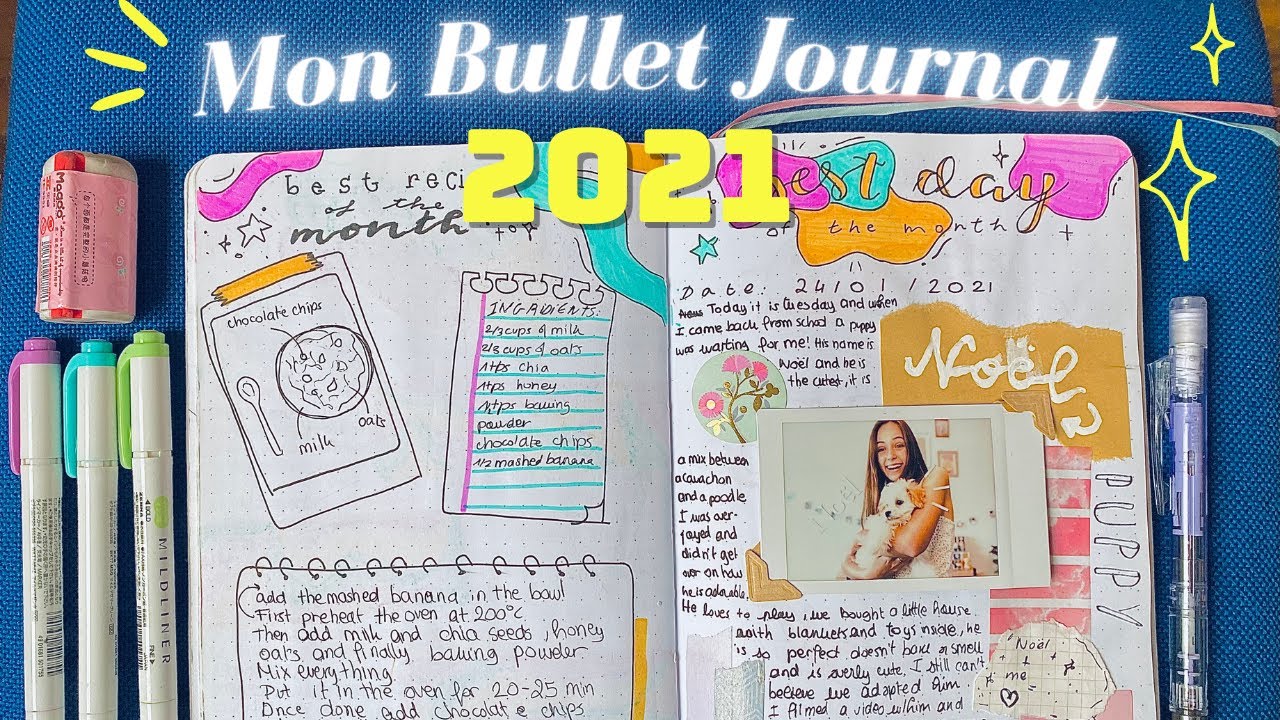 Mon Bullet Journal
2021
best reci
of the
month
chocolate chips
oats
milk
INGRADIENTS:
2/3 cups of milk
2/3 cups of oats
1tps chia
1tps honey
1tps bawing
powder
chocolate chips
1/2 mashed banana
add the mashed banana in the bowl
First preheat the oven at 200°C
Then add milk and chia seeds, honey
oats and finally bawing powder
Mix everything
Put it in the oven for 20-25 min
Once done add chocolate chips
best day
of the month
Date: 24/01/2021
Today it is tuesday and when
I came back from school a puppy
was waiting for me! His name is
Noël and he is
the cutest, it is
a mix between
a cavachon
and a poodle
I was over-
joyed and
didn't get
over on how
he is adorable.
He loves to play, we bought a little house
with blankets and toys inside, he
is so perfect doesn't bark or smell
and is overly cute. I still can't
believe we adopted him.
I filmed a video whim and
Noël
PUPPY
Noël
+
me
MILDLINER
GOLD